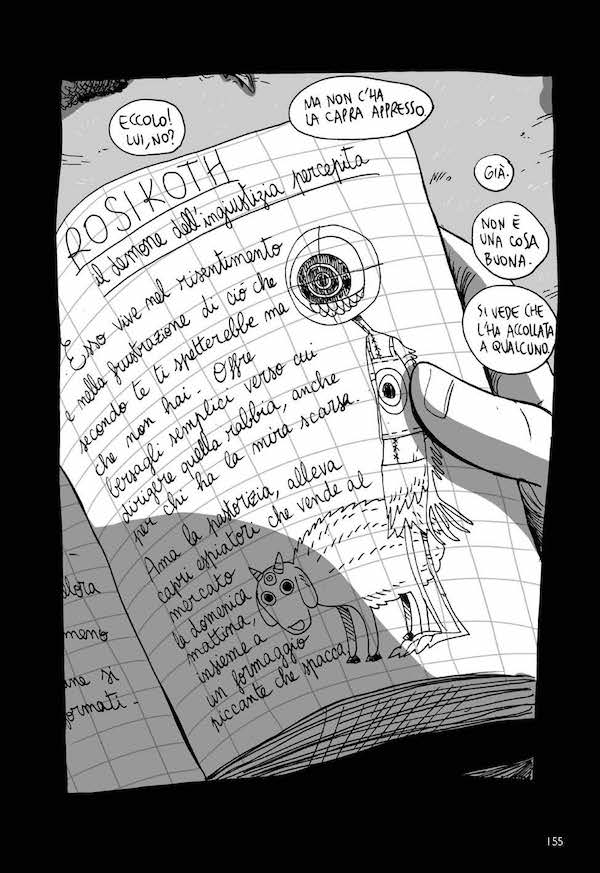 ECCOLO!
LUI, NO?
MA NON C'HA
LA CAPRA APPRESSO.
GIÀ.
NON È
UNA COSA
BUONA.
SI VEDE CHE
L'HA ACCOLLATA
A QUALCUNO.
ROSIKOTH
il demone dell'ingiustizia percepita
Esso vive nel risentimento
e nella frustrazione di ciò che
secondo te ti spetterebbe ma
che non hai. Offre
bersagli semplici verso cui
dirigere quella rabbia, anche
per chi ha la mira scarsa.
Ama la pastorizia, alleva
capri espiatori che vende al
mercato
la domenica
mattina,
insieme a
un formaggio
piccante che spacca
elora
meno
ane si
formati.
155